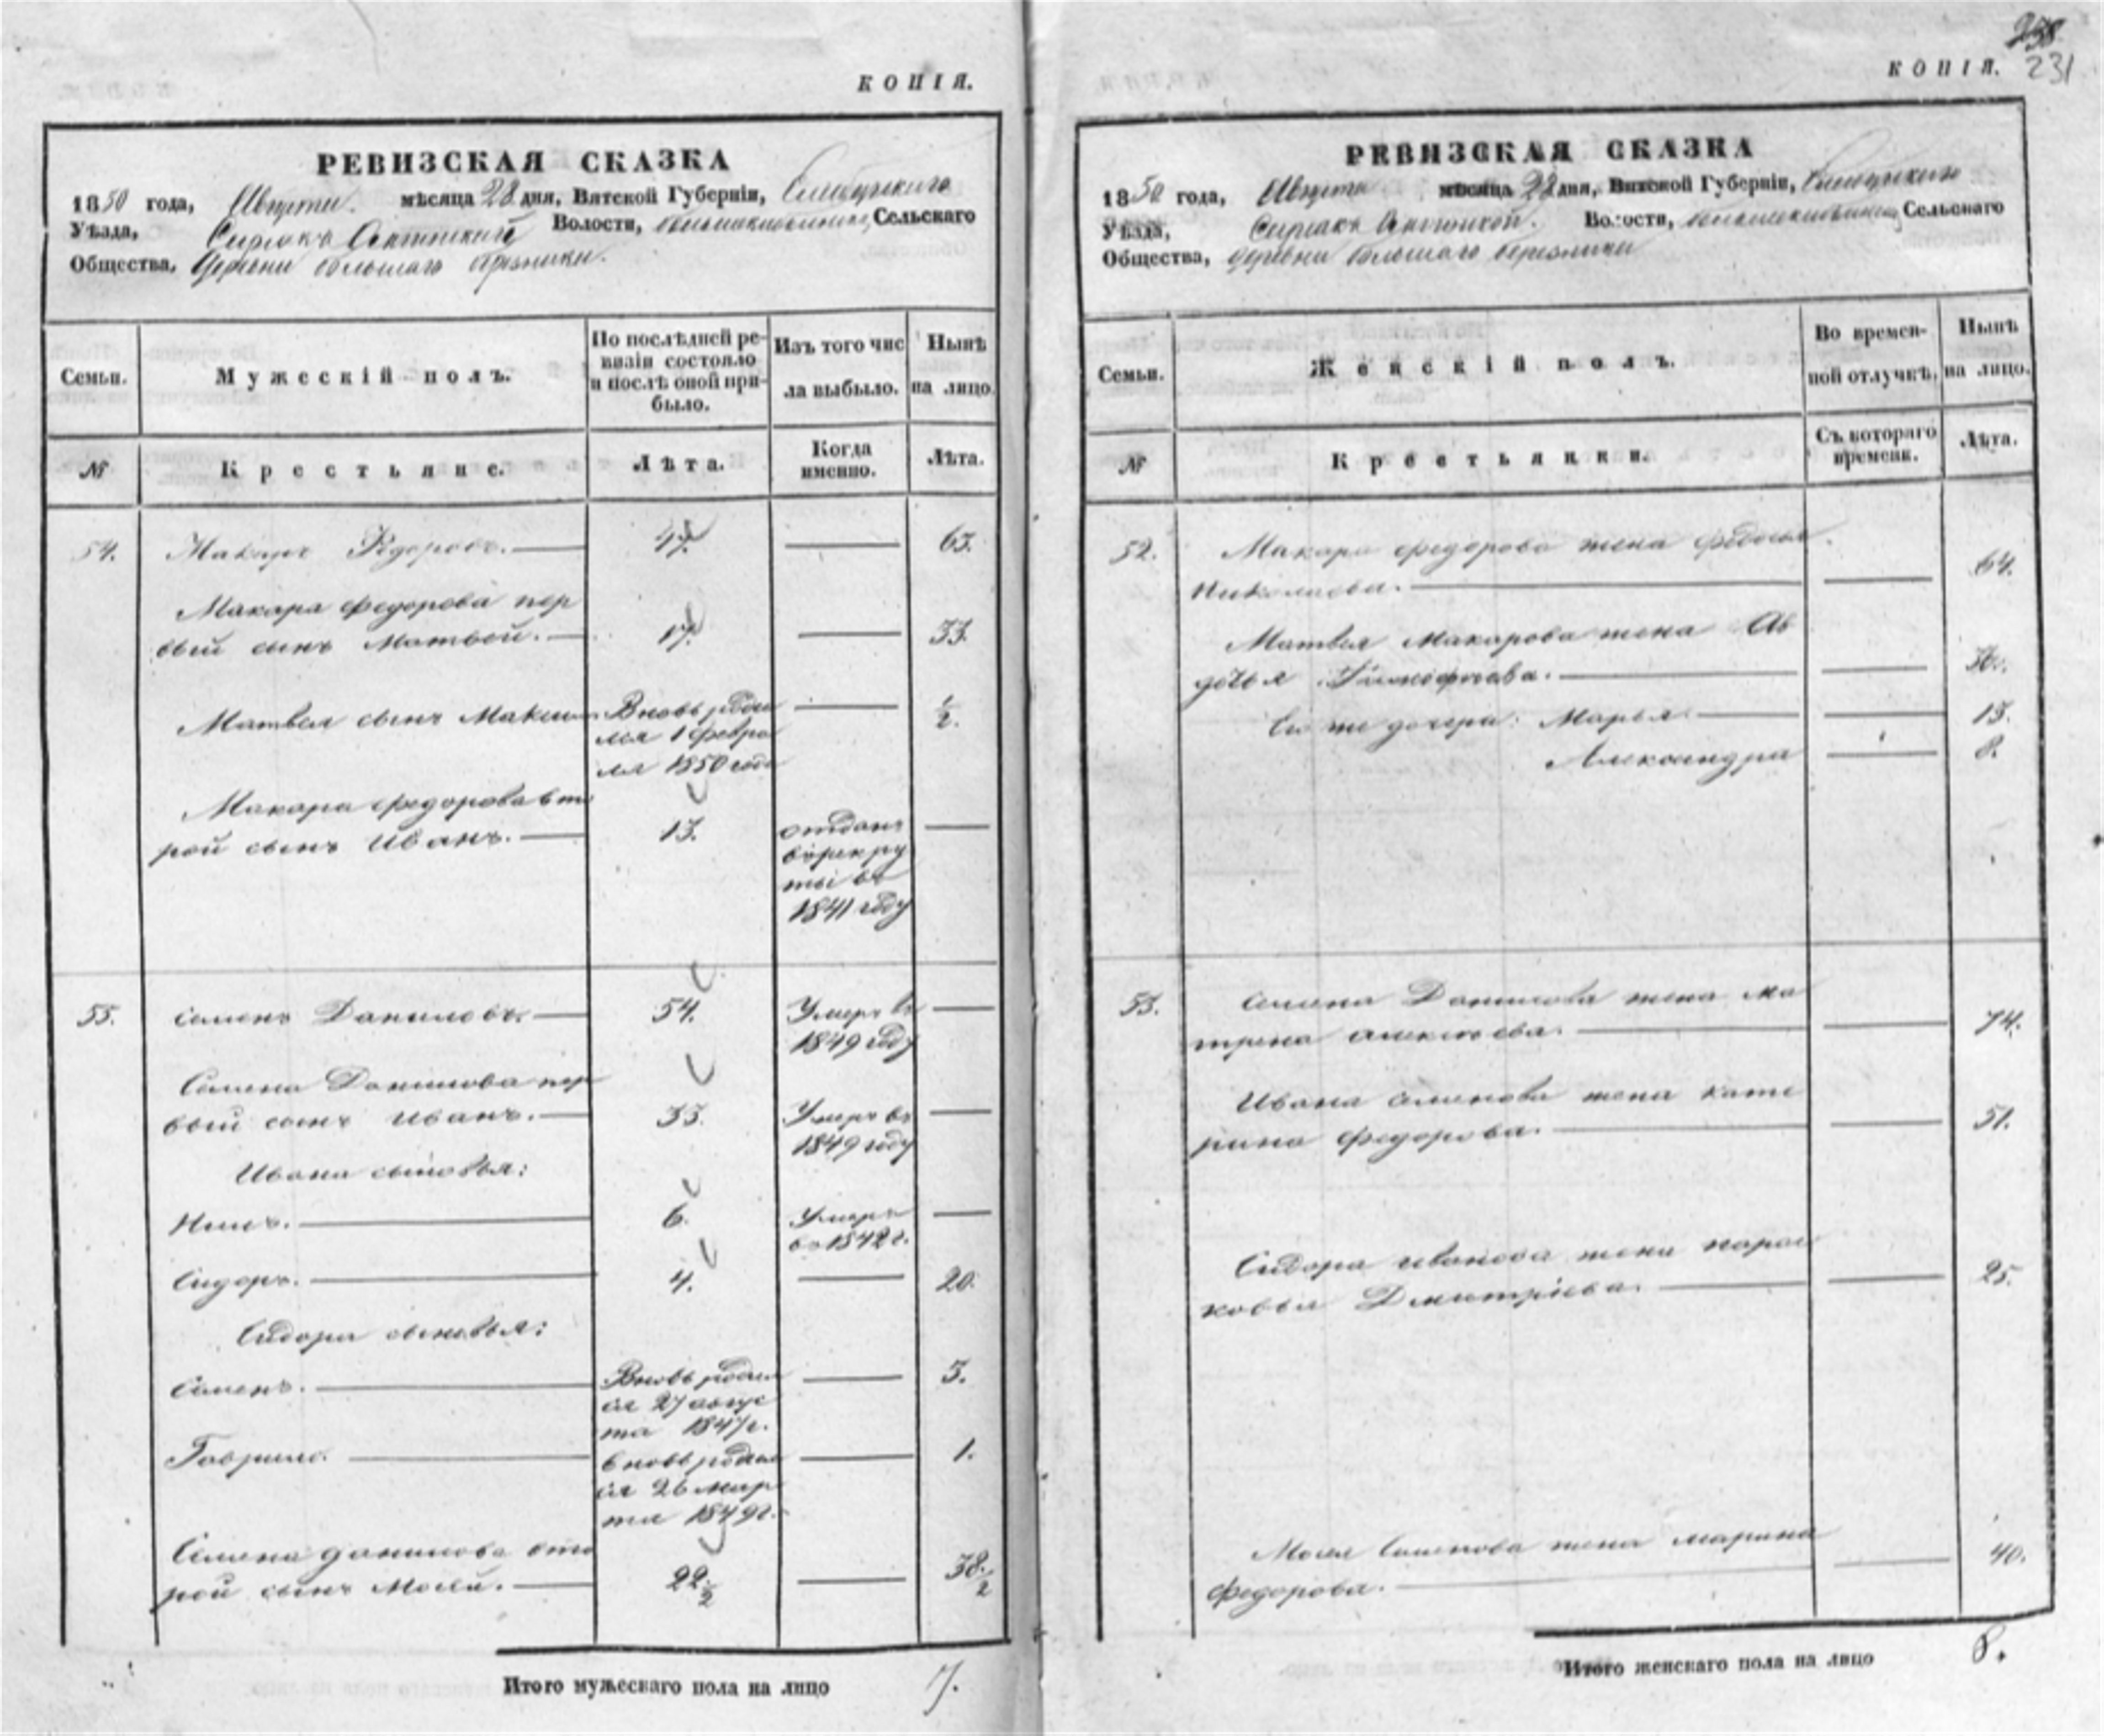 КОПІЯ.
РЕВИЗСКАЯ СКАЗКА
1850 года, Августа мѣсяца 28 дня, Вятской Губерніи,
Уѣзда, Волости, Сельскаго
Общества, деревни большаго березника.
Семьи.
Мужескій полъ.
По послѣдней ре-
визіи состояло
и послѣ оной при-
было.
Изъ того чис
ла выбыло.
Нынѣ
на лицо.
№
Крестьяне.
Лѣта.
Когда
именно.
Лѣта.
54. Макаръ Федоровъ. 47. 63.
Макара федорова пер
вый сынъ Матвей. 17. 33.
Матвея сынъ Максим Вновь роди ½.
лся 1 февра
ля 1850 года
Макара федорова вто
рой сынъ Иванъ. 13. отданъ
въ рекру
ты въ
1841 году
55. Семенъ Даниловъ. 54. Умеръ въ
1849 году
Семена Данилова пер
вый сынъ Иванъ. 33. Умеръ въ
1849 году
Ивана сыновья:
Нилъ. 6. Умеръ
въ 1842 г.
Сидоръ. 4. 20.
Сидора сыновья:
Семенъ. Вновь родил 3.
ся 27 авгус
та 1847 г.
Гаврило. вновь родил 1.
ся 26 мар
та 1849 г.
Семена данилова вто
рой сынъ Мосей. 22½ 38½
Итого мужескаго пола на лицо 7.
КОПІЯ. 231
РЕВИЗСКАЯ СКАЗКА
1850 года, Августа мѣсяца 28 дня, Вятской Губерніи,
Уѣзда, Волости, Сельскаго
Общества, деревни большаго березника
Семьи.
Женскій полъ.
Во времен-
ной отлучкѣ,
Нынѣ
на лицо.
№
Крестьянки.
Съ котораго
времени.
Лѣта.
52. Макара федорова жена федосья
Николаева. 64.
Матвея Макарова жена Ав
дотья 36.
Его же дочери: Марья 13.
Александра 8.
53. Семена Данилова жена ма
трена алексѣева. 74.
Ивана семенова жена кате
рина федорова. 51.
Сидора иванова жена парас
ковья Дмитріева. 25.
Мосея Семенова жена марина
федорова. 40.
Итого женскаго пола на лицо 8.